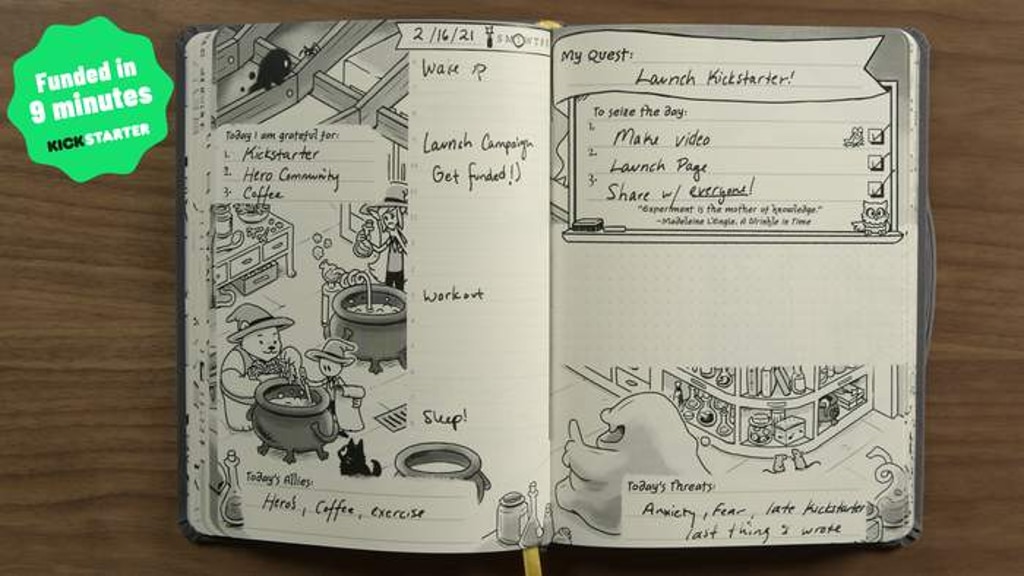 Funded in
9 minutes
KICKSTARTER
2/16/21
SMOTWTFS
Wake
Launch Campaign
Get funded!)
Workout
Sleep!
Today I am grateful for:
1. Kickstarter
2. Hero Community
3. Coffee
Today's Allies:
Hero's, Coffee, exercise
My Quest:
Launch Kickstarter!
To seize the day:
1. Make video
2. Launch Page
3. Share w/ everyone!
"Experiment is the mother of knowledge."
-Madeleine L'Engle, A Wrinkle in Time
Today's Threats:
Anxiety, Fear, late kickstarter
last thing I wrote